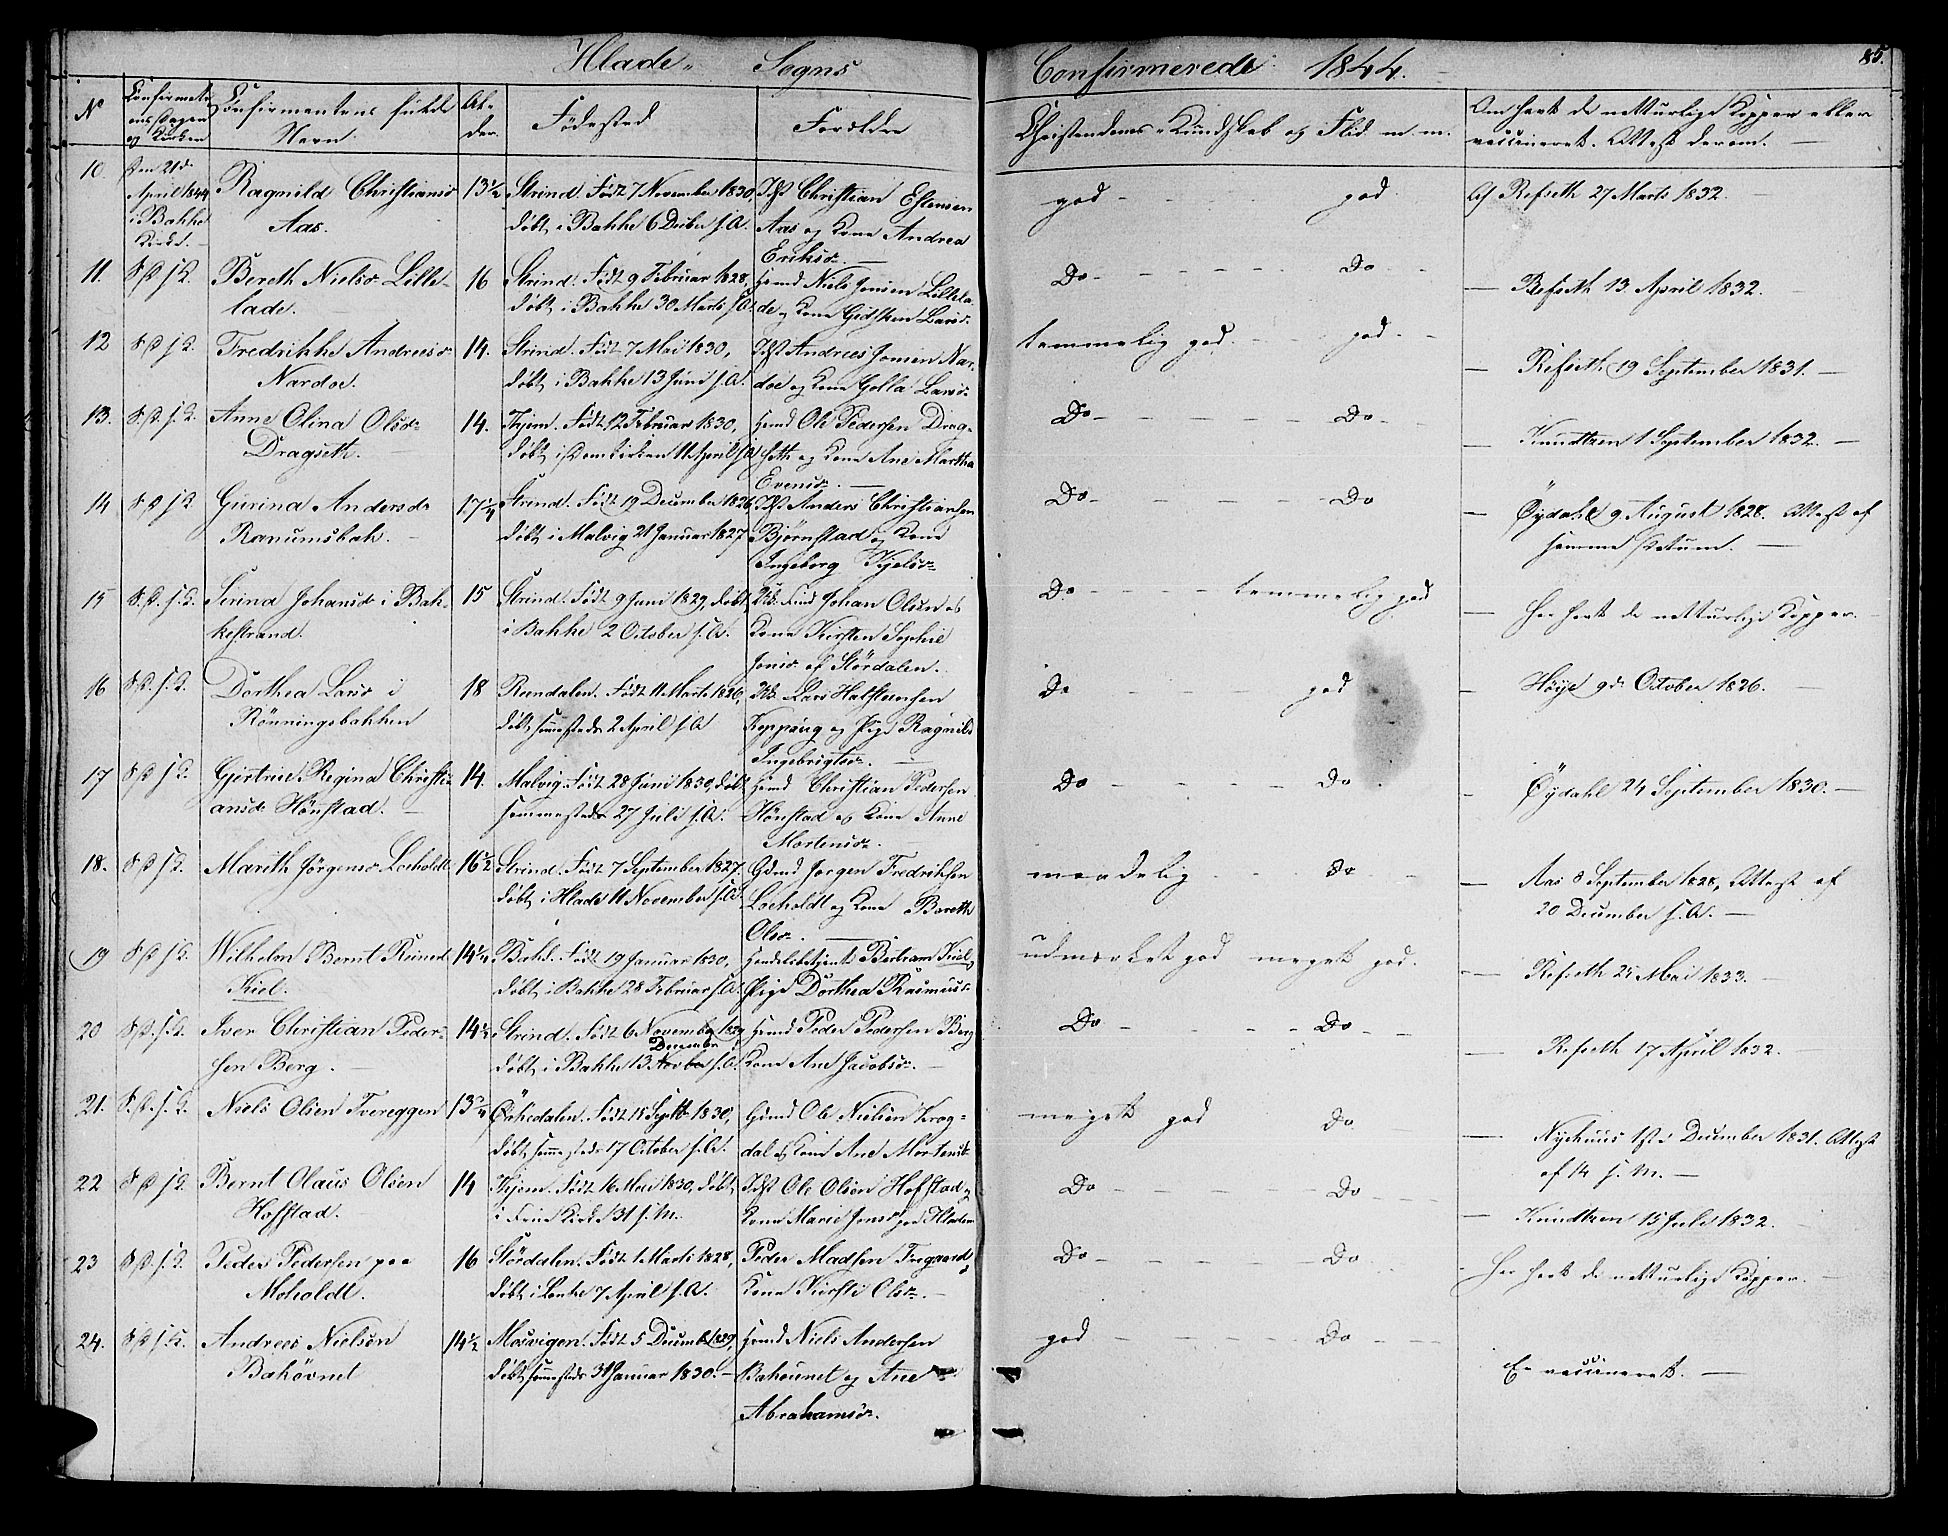 Hlade Sogns
Confirmerede 1844.
85.
N
Confirmati-
ons Dagen
og Kirken
Confirmantens fulde
Navn.
Al-
der.
Fødested
Forældre
Christendoms-Kundskab og Flid m. m.
Om havt de naturlige Kopper eller
vaccineret. Attest derom.
10. Den 21de
April 1844
i Bakke
Kirke.
Ragnild Christiansd
Aas.
13½
Strind. Født 7 November 1830,
døbt i Bakke 6 Decber s. A.
Idst Christian Estensen
Aas og Kone Andrea
Eriksd.
god - - - - god
Af Refseth 27 Marts 1832.
11. S. D. s. K.
Bereth Nielsd Lille-
lade.
16
Strind. Født 9 Februar 1828,
døbt i Bakke 30 Marts s. A.
Hmd Niels Jonsen Lillela-
de og Kone Gidsken Larsd.
Do - - - - Do
— Refseth 13 April 1832.
12 S. D. s. K.
Fredrikke Andreasd
Nardoe.
14.
Strind. Født 7 Mai 1830,
døbt i Bakke 13 Juni s. A.
Idst Andreas Jonsen Nar-
doe og Kone Golla Larsd.
temmelig god. - - god
— Refseth 19 September 1831. —
13. S. D. s. K.
Anne Olina Olsd
Dragseth.
14.
Thjem. Født 12 Februar 1830,
døbt i Domkirken 11 April s. A.
Hmd Ole Pedersen Drag-
seth og Kone Ane Martha
Evensd. —
Do - - - - Do
— Knudtzen 1 September 1832. —
14 S. D. s. K.
Gurina Andersd
Ranumsbak.
17¼
Strind. Født 19 December 1826,
døbt i Malvig 21 Januar 1827
Idst Anders Christiansen
Bjørnstad og Kone
Ingeborg Kjelsd
Do - - - - Do
— Öÿdahl 9 August 1828. Attest af
samme Datum. —
15 S. D. s. K.
Serina Johansd i Bak-
kestrand.
15
Strind. Født 9 Juni 1829, døbt
i Bakke 2 October s. A.
Johan Olsen og
Kone Kirsten Sophie
Jonsd. af Stördalen.
Do - - - - temmelig god
— Har havt de naturlige Kopper.
16 S. D. s. K.
Dorthea Larsd i
Rönningsbakken
18
Rendalen. Født 11 Marts 1826,
døbt sammesteds 2 April s. A.
Lars Halfstensen
Koppang og Pige Ragnild
Ingebrigtsd. —
Do - - god
— Höÿe 9de October 1826. —
17 S. D. s. K.
Gjertrue Regina Christi-
ansd Hönstad. —
14.
Malvig. Født 28 Juni 1830, døbt
sammesteds 27 Juli s. A.
Hmd Christian Pedersen
Hönstad og Kone Anne
Mortensd.
Do - - - - Do
— Öÿdahl 24 September 1830. —
18. S. D. s. K.
Marith Jörgensd Loeholdt
16½
Strind. Født 7 September 1827.
døbt i Hlade 11 November s. A.
Gdmd Jørgen Fredriksen
Loeholdt og Kone Bereth
Olsd. —
maadelig - - - Do
— Aas 8 September 1828, Attest af
20 December s. A. —
19 S. D. s. K.
Wilhelm Bernt
Kiel.
14¼
Bakl. Født 19 Januar 1830,
døbt i Bakke 28 Februar s. A.
Handelsbetjent Bertram Kiel,
Pige Dorthea Rasmusd.
udmærket god meget god.
— Refseth 25 Mai 1833. —
20 S. D. s. K.
Iver Christian Peder-
sen Berg. —
14½
Strind. Født 6 November 1829
December
døbt i Bakke 13 Novber s. A.
Hmd Peder Pedersen Berg
Kone Ane Jacobsd. —
Do - - - - Do - -
— Refseth 17 April 1832. —
21. S. D. s. K.
Niels Olsen Tvereggen
13¾
Örkedalen. Født 18 Septbr 1830,
døbt sammesteds 17 October s. A.
Gdmd Ole Nielsen Krog-
dal og Kone Ane Mortensd
meget god Do
— Nyehuus 1ste December 1831. Attest
af 14 s. M. —
22 S. D. s. K.
Bernt Olaus Olsen
Hoffstad.
14
Thjem. Født 16 Mai 1830, døbt
i Frue Kirke 31 s. M.
Idst Ole Olsen Hofstad,
Kone Marie Jonsd
Do - - - - Do
— Knudtzen 15 Juli 1832.
23 S. D. s. K.
Peder Pedersen paa
Moholdt.
16
Stördalen. Født 1 Marts 1828,
døbt i Lanke 7 April s. A.
Peder Madsen Fregaard
Kone Kirsti Olsd. —
Do - - - - Do
Har havt de naturlige Kopper. —
24. S. D. s. K.
Andreas Nielsen
Bakövnet
14½
Mosvigen. Født 5 Decemb 1829,
døbt sammesteds 31 Januar 1830. —
Hmd Niels Andersen
Bakeunet og Ane
Abrahamsd.
god - - - - Do
Er vaccineret. —